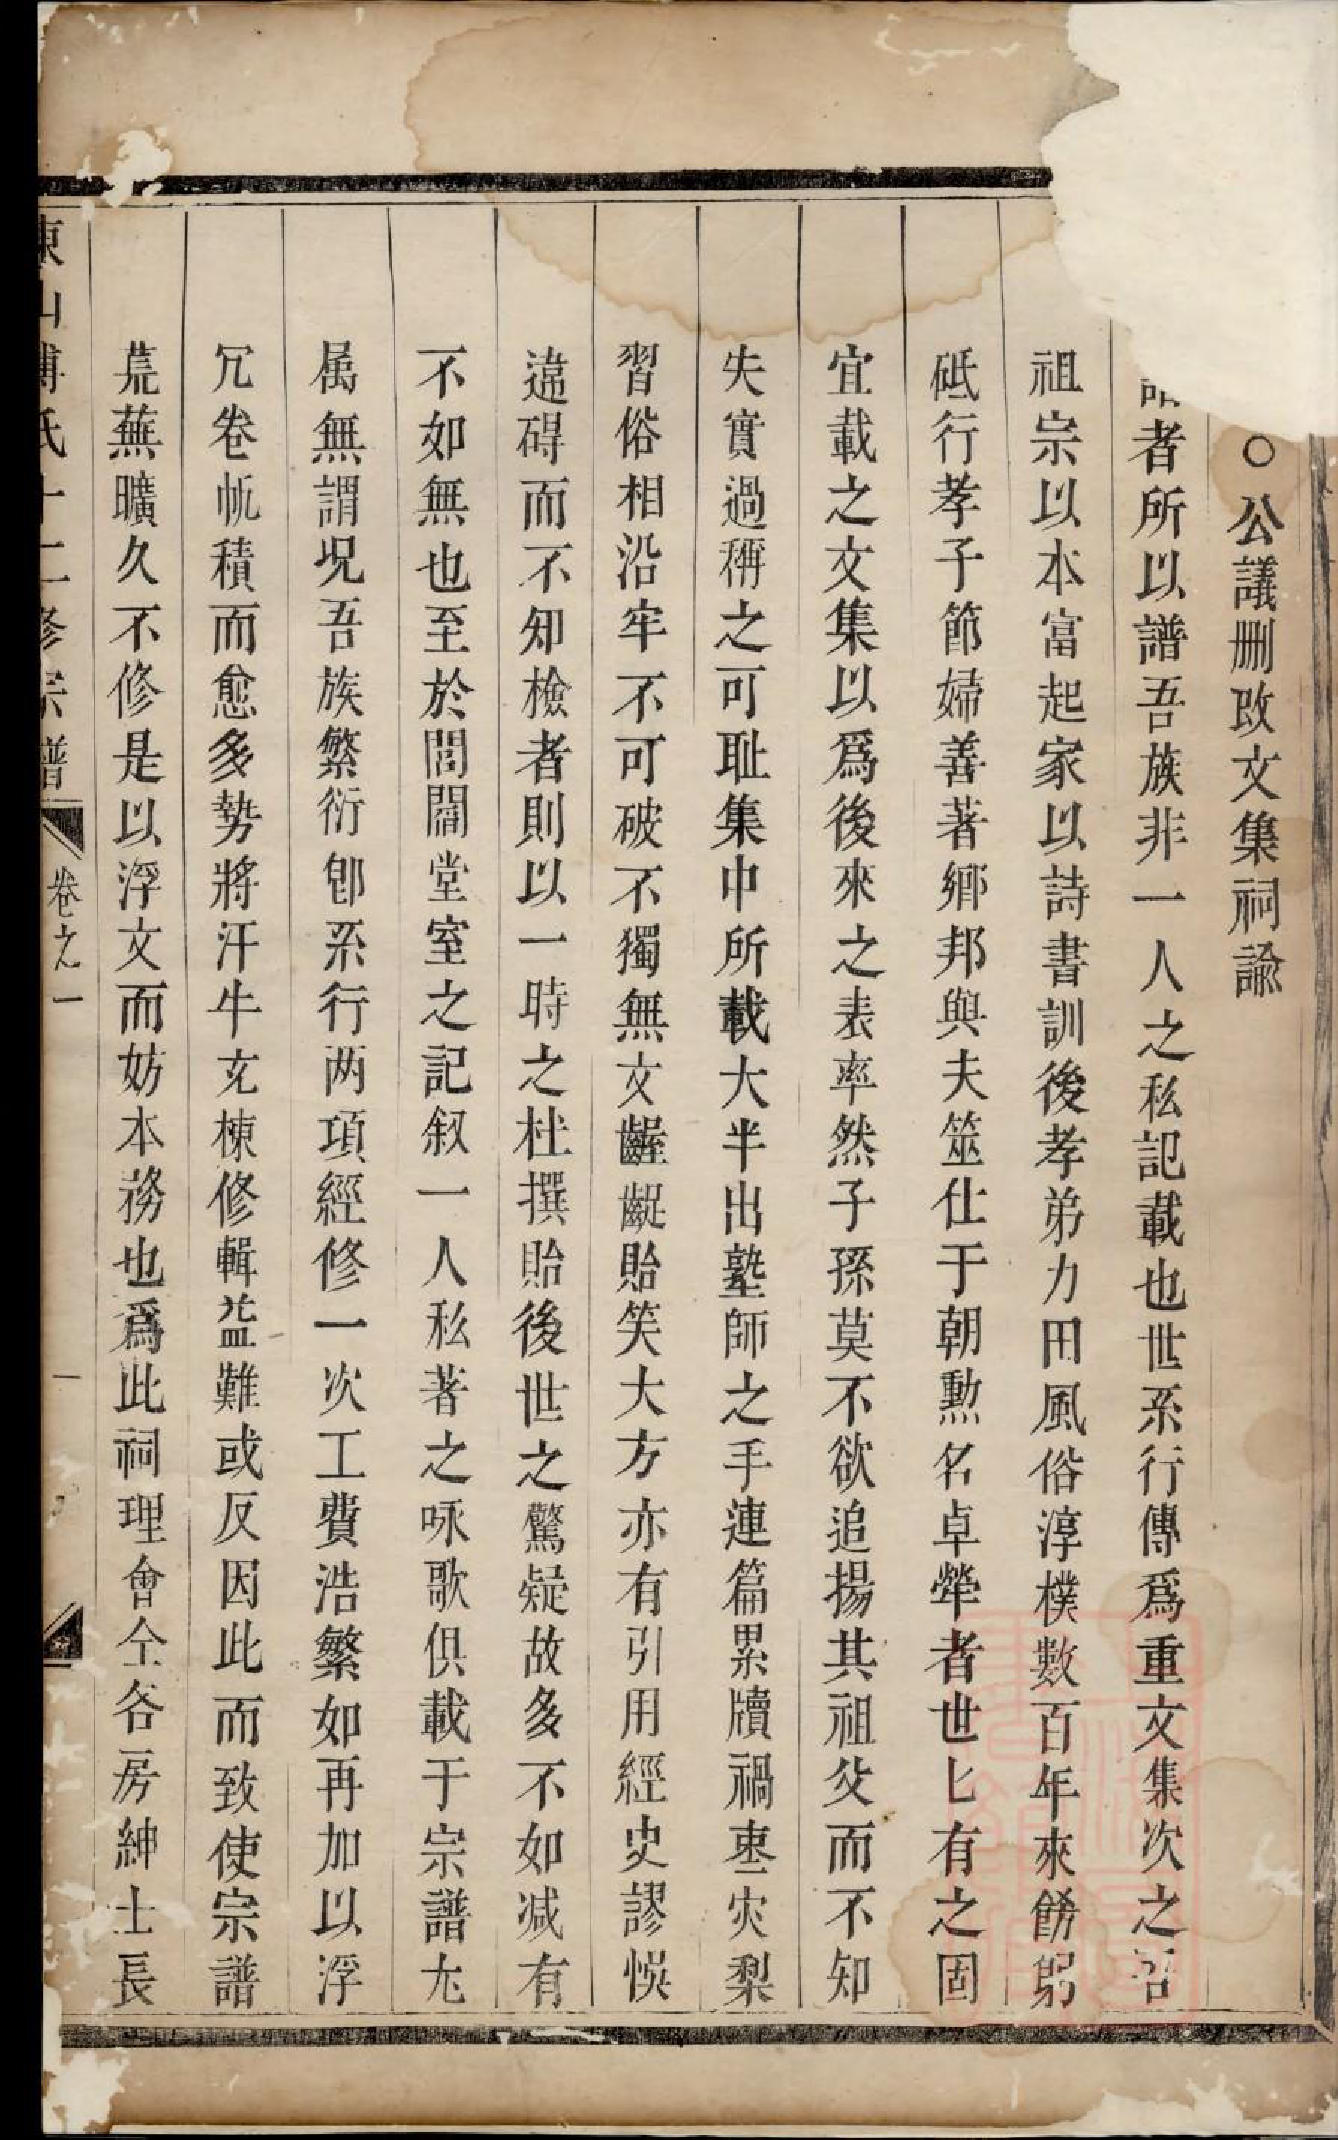 ○公議删改文集祠諭
譜者所以譜吾族非一人之私記載也世系行傳爲重文集次之吾
祖宗以本富起家以詩書訓後孝弟力田風俗淳樸數百年來飭躬
砥行孝子節婦善著鄉邦與夫筮仕于朝勲名卓犖者世匕有之固
宜載之文集以爲後來之表率然子孫莫不欲追揚其祖父而不知
失實過稱之可耻集中所載大半出塾師之手連篇累牘禍棗灾梨
習俗相沿牢不可破不獨無文齷齪貽笑大方亦有引用經史謬悞
違碍而不知檢者則以一時之杜撰貽後世之驚疑故多不如减有
不如無也至於閭閻堂室之記叙一人私著之咏歌俱載于宗譜尢
属無謂况吾族繁衍卽系行两項經修一次工費浩繁如再加以浮
冗卷帙積而愈多勢將汗牛充棟修輯益難或反因此而致使宗譜
荒蕪曠久不修是以浮文而妨本務也爲此祠理會仝各房紳士長
東山傅氏十二修宗譜 卷之一 一